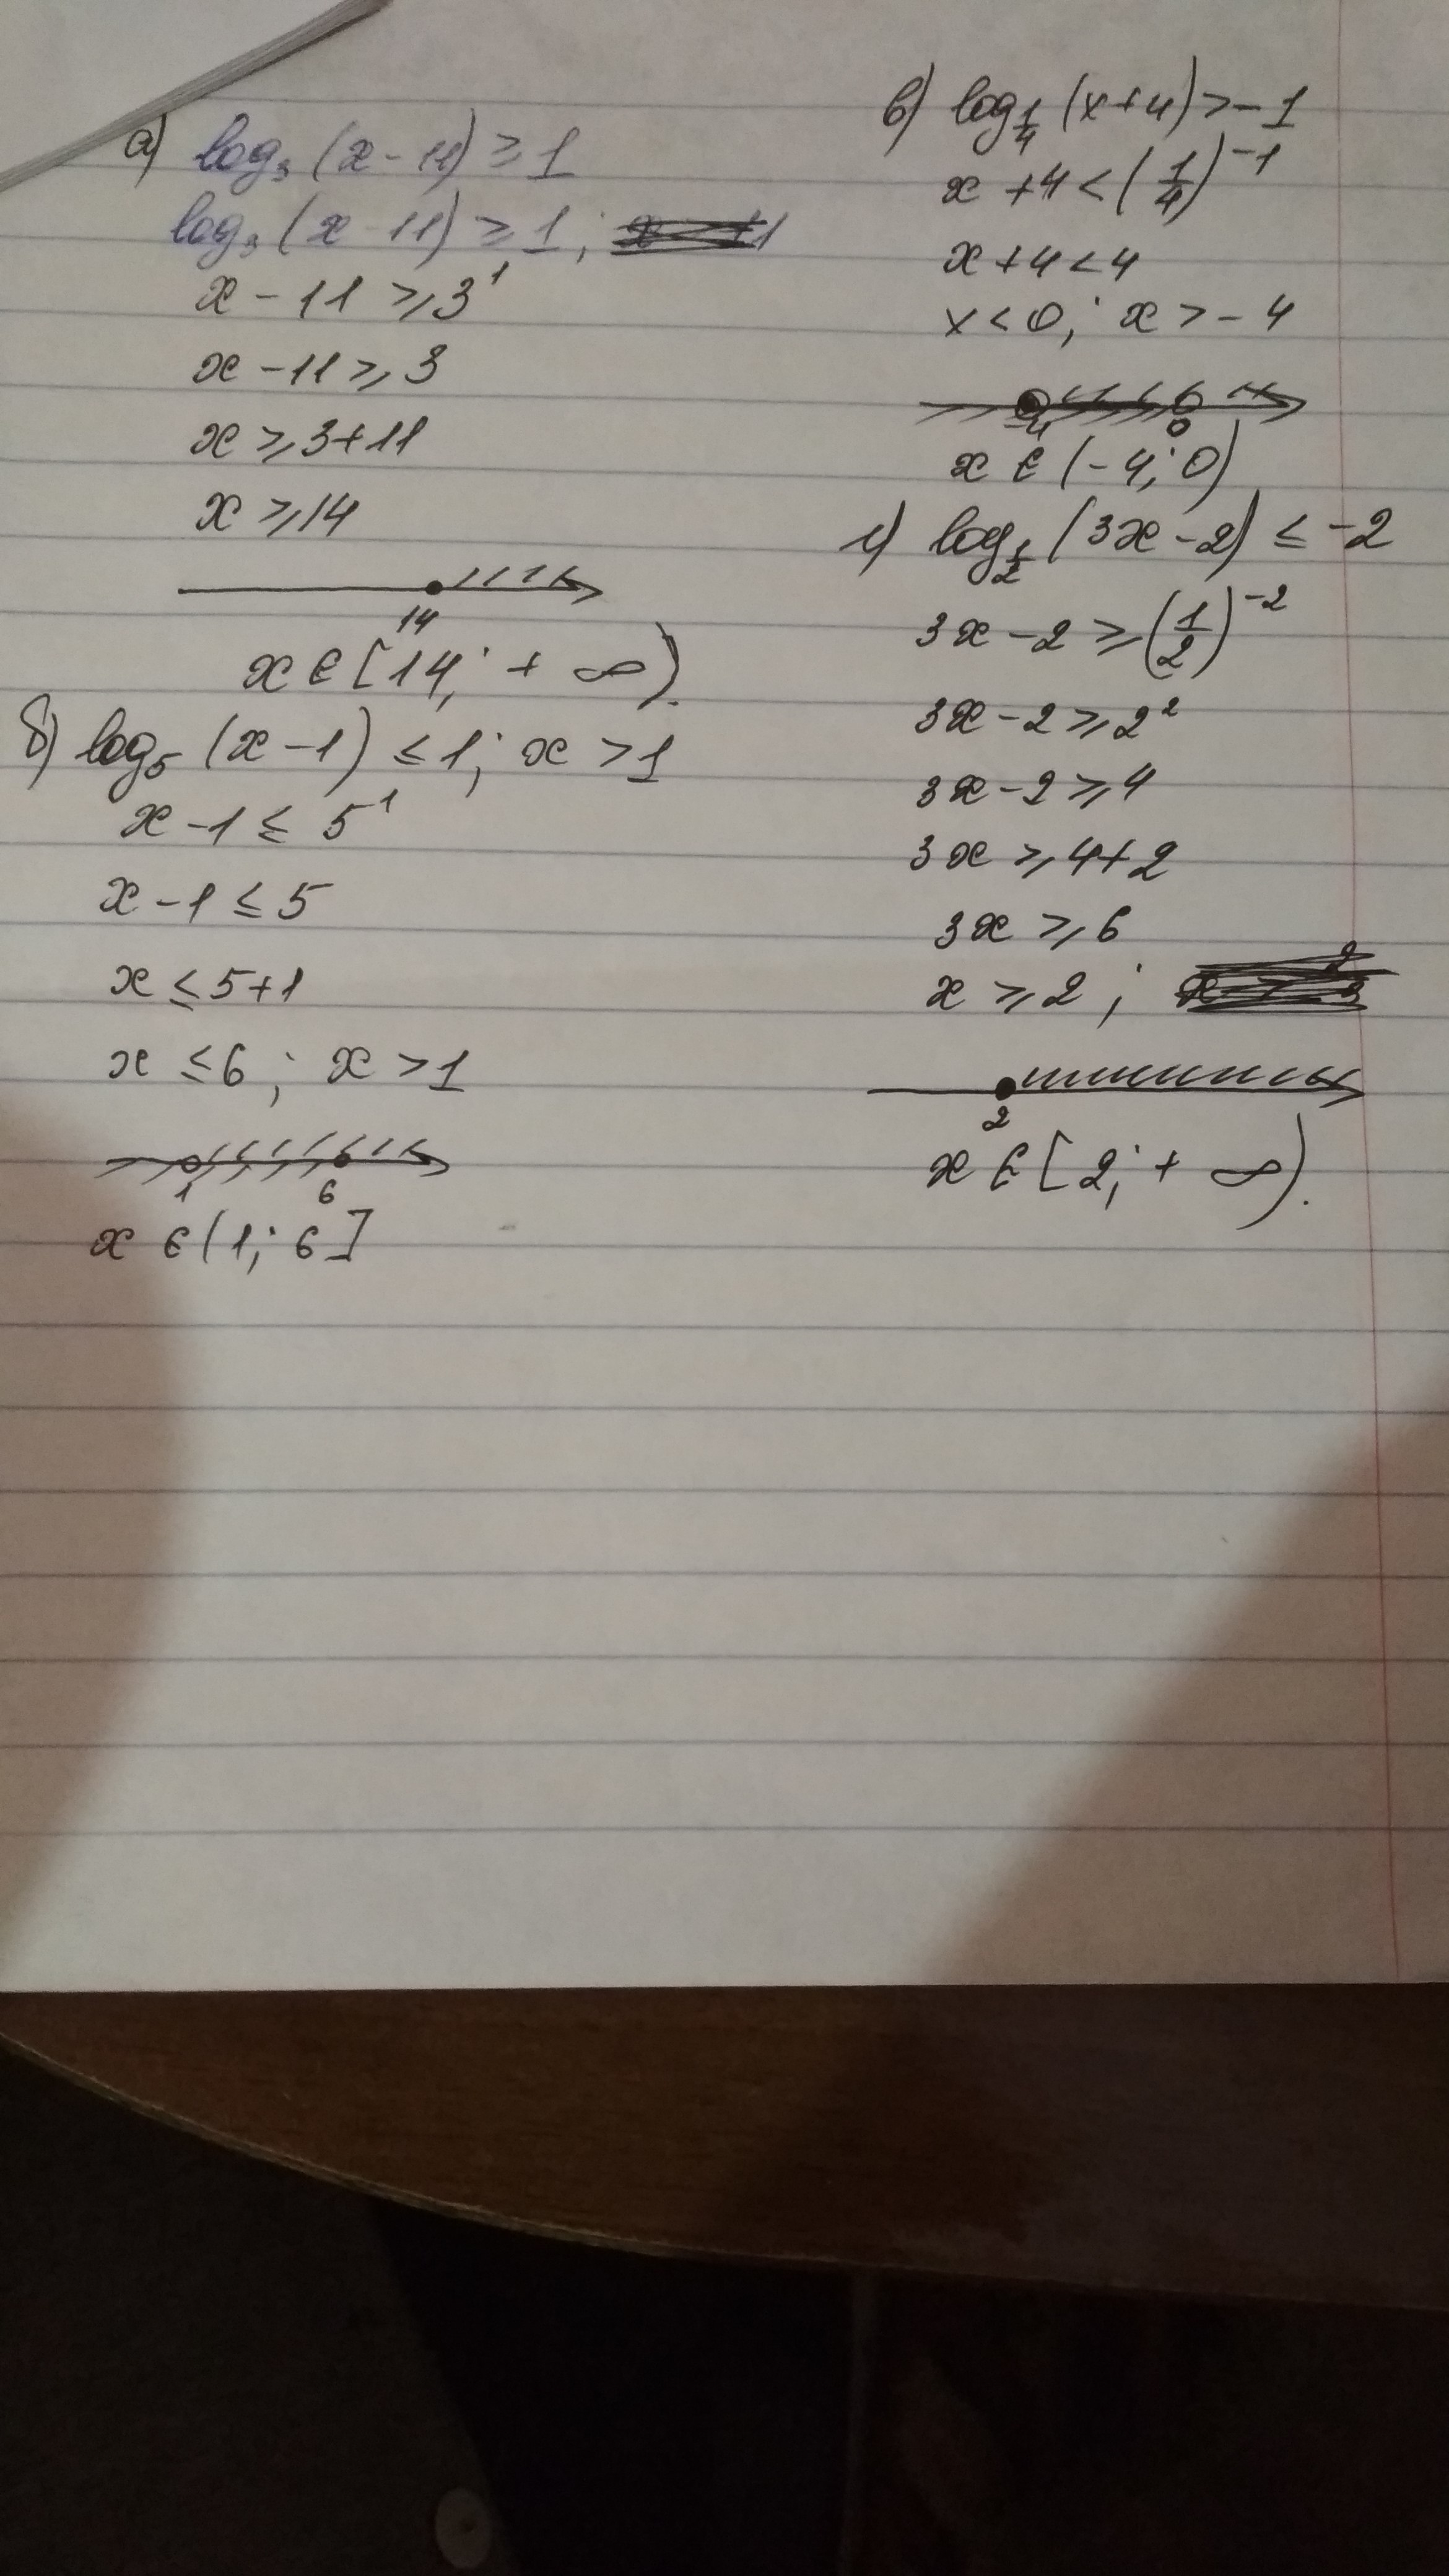 а) log₃ (x - 11) ≥ 1
log₃ (x - 11) ≥ 1;
x - 11 ≥ 3¹
x - 11 ≥ 3
x ≥ 3+11
x ≥ 14
14
x ∈ [14; + ∞).
б) log₅ (x - 1) ≤ 1; x > 1
x - 1 ≤ 5¹
x - 1 ≤ 5
x ≤ 5+1
x ≤ 6; x > 1
1 6
x ∈ (1; 6]
в) log_{1/4} (x+4) > -1
x + 4 < (1/4)⁻¹
x + 4 < 4
x < 0; x > - 4
-4 0
x ∈ (-4; 0)
г) log_{1/2} (3x - 2) ≤ -2
3x - 2 ≥ (1/2)⁻²
3x - 2 ≥ 2²
3x - 2 ≥ 4
3x ≥ 4+2
3x ≥ 6
x ≥ 2;
2
x ∈ [2; + ∞).